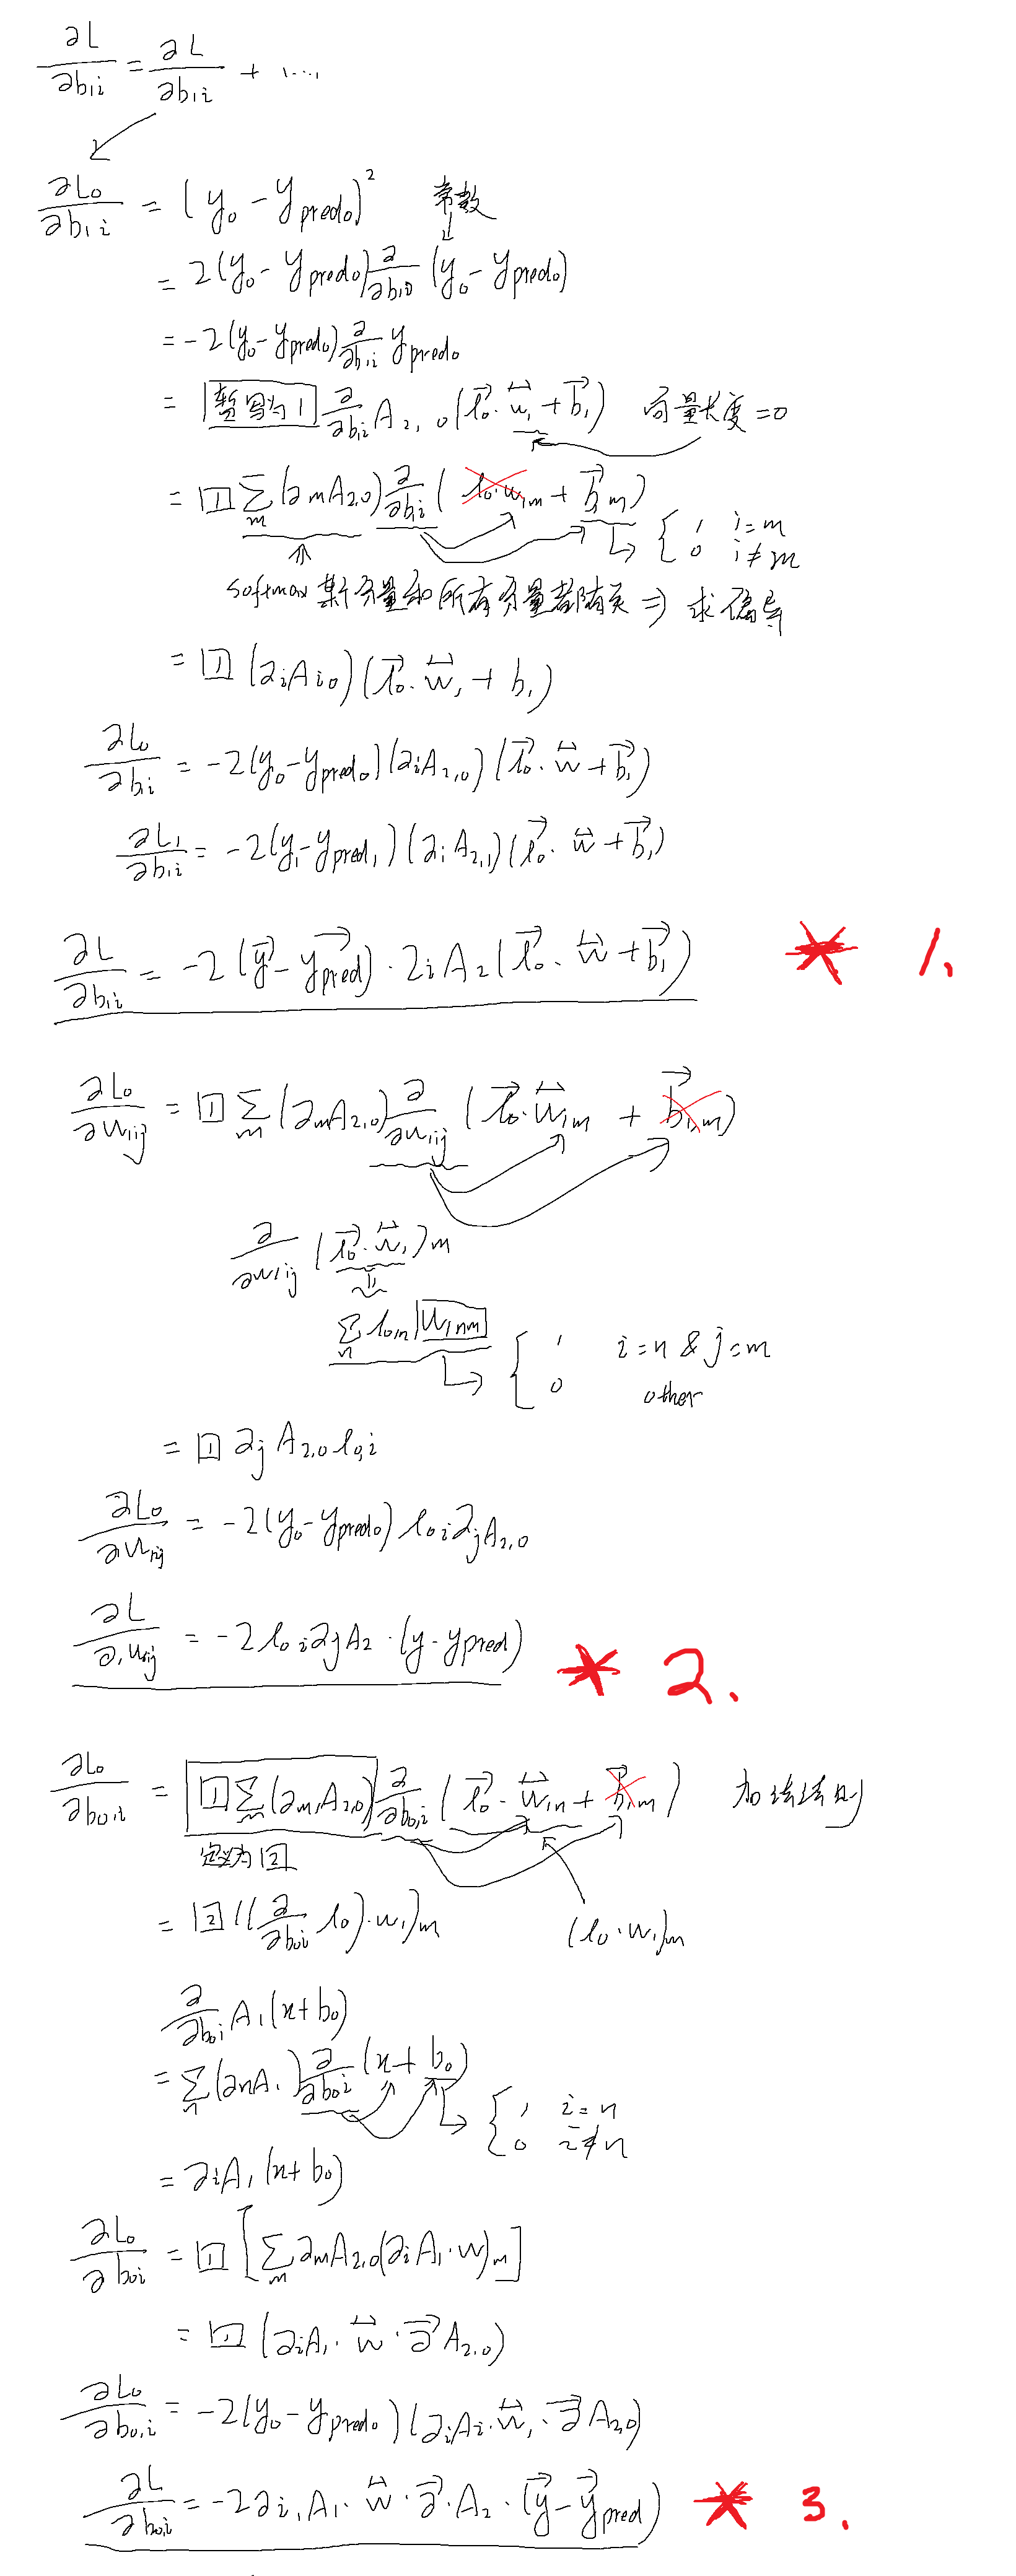 ∂L/∂b₁i = ∂L/∂b₁i + ....
∂L₀/∂b₁i = (y₀ - ypred₀)² 常数
= 2(y₀ - ypred₀) ∂/∂b₁₀ (y₀ - ypred₀)
= -2(y₀ - ypred₀) ∂/∂b₁i ypred₀
= 暂写为1 ∂/∂b₁i A₂,₀(l₀·w₁ + b₁) 向量长度=0
= 1 Σm (∂mA₂,₀) ∂/∂b₁i (l₀·w₁m + b₁m)
{ 1 i=m
0 i≠m
softmax 某分量和所有分量都有关 ⇒ 求偏导
= 1 (∂iAi₀)(l₀·w₁ + b₁)
∂L₀/∂b₁i = -2(y₀ - ypred₀)(∂iA₂,₀)(l₀·w + b₁)
∂L₁/∂b₁i = -2(y₁ - ypred₁)(∂iA₂,₁)(l₀·w + b₁)
∂L/∂b₁i = -2(y - ypred)·∂iA₂(l₀·w + b₁) * 1.
∂L₀/∂w₁ij = 1 Σm (∂mA₂,₀) ∂/∂w₁ij (l₀·w₁m + b₁,m)
∂/∂w₁ij (l₀·w₁)m
Σn l₀,n w₁nm { 1 i=n & j=m
0 other
= 1 ∂jA₂,₀ l₀,i
∂L₀/∂w₁ij = -2(y₀ - ypred₀) l₀i ∂jA₂,₀
∂L/∂w₁ij = -2 l₀i ∂jA₂·(y - ypred) * 2.
∂L₀/∂b₀,i = 1 Σm (∂mA₂,₀) ∂/∂b₀,i (l₀·w₁n + b₁m) 加法法则
定义为2
= 2((∂/∂b₀i l₀)·w₁)m (l₀·w₁)m
∂/∂b₀i A₁(x+b₀)
= Σn (∂nA₁) ∂/∂b₀i (x+b₀)
{ 1 i=n
0 i≠n
= ∂iA₁(x+b₀)
∂L₀/∂b₀i = 1 [Σm ∂mA₂,₀(∂iA₁·w)m]
= 1 (∂iA₁·w·∂A₂,₀)
∂L₀/∂b₀,i = -2(y₀ - ypred₀)(∂iAi·w₁·∂A₂,₀)
∂L/∂b₀,i = -2∂i,A₁·w·∂·A₂·(y - ypred) * 3.